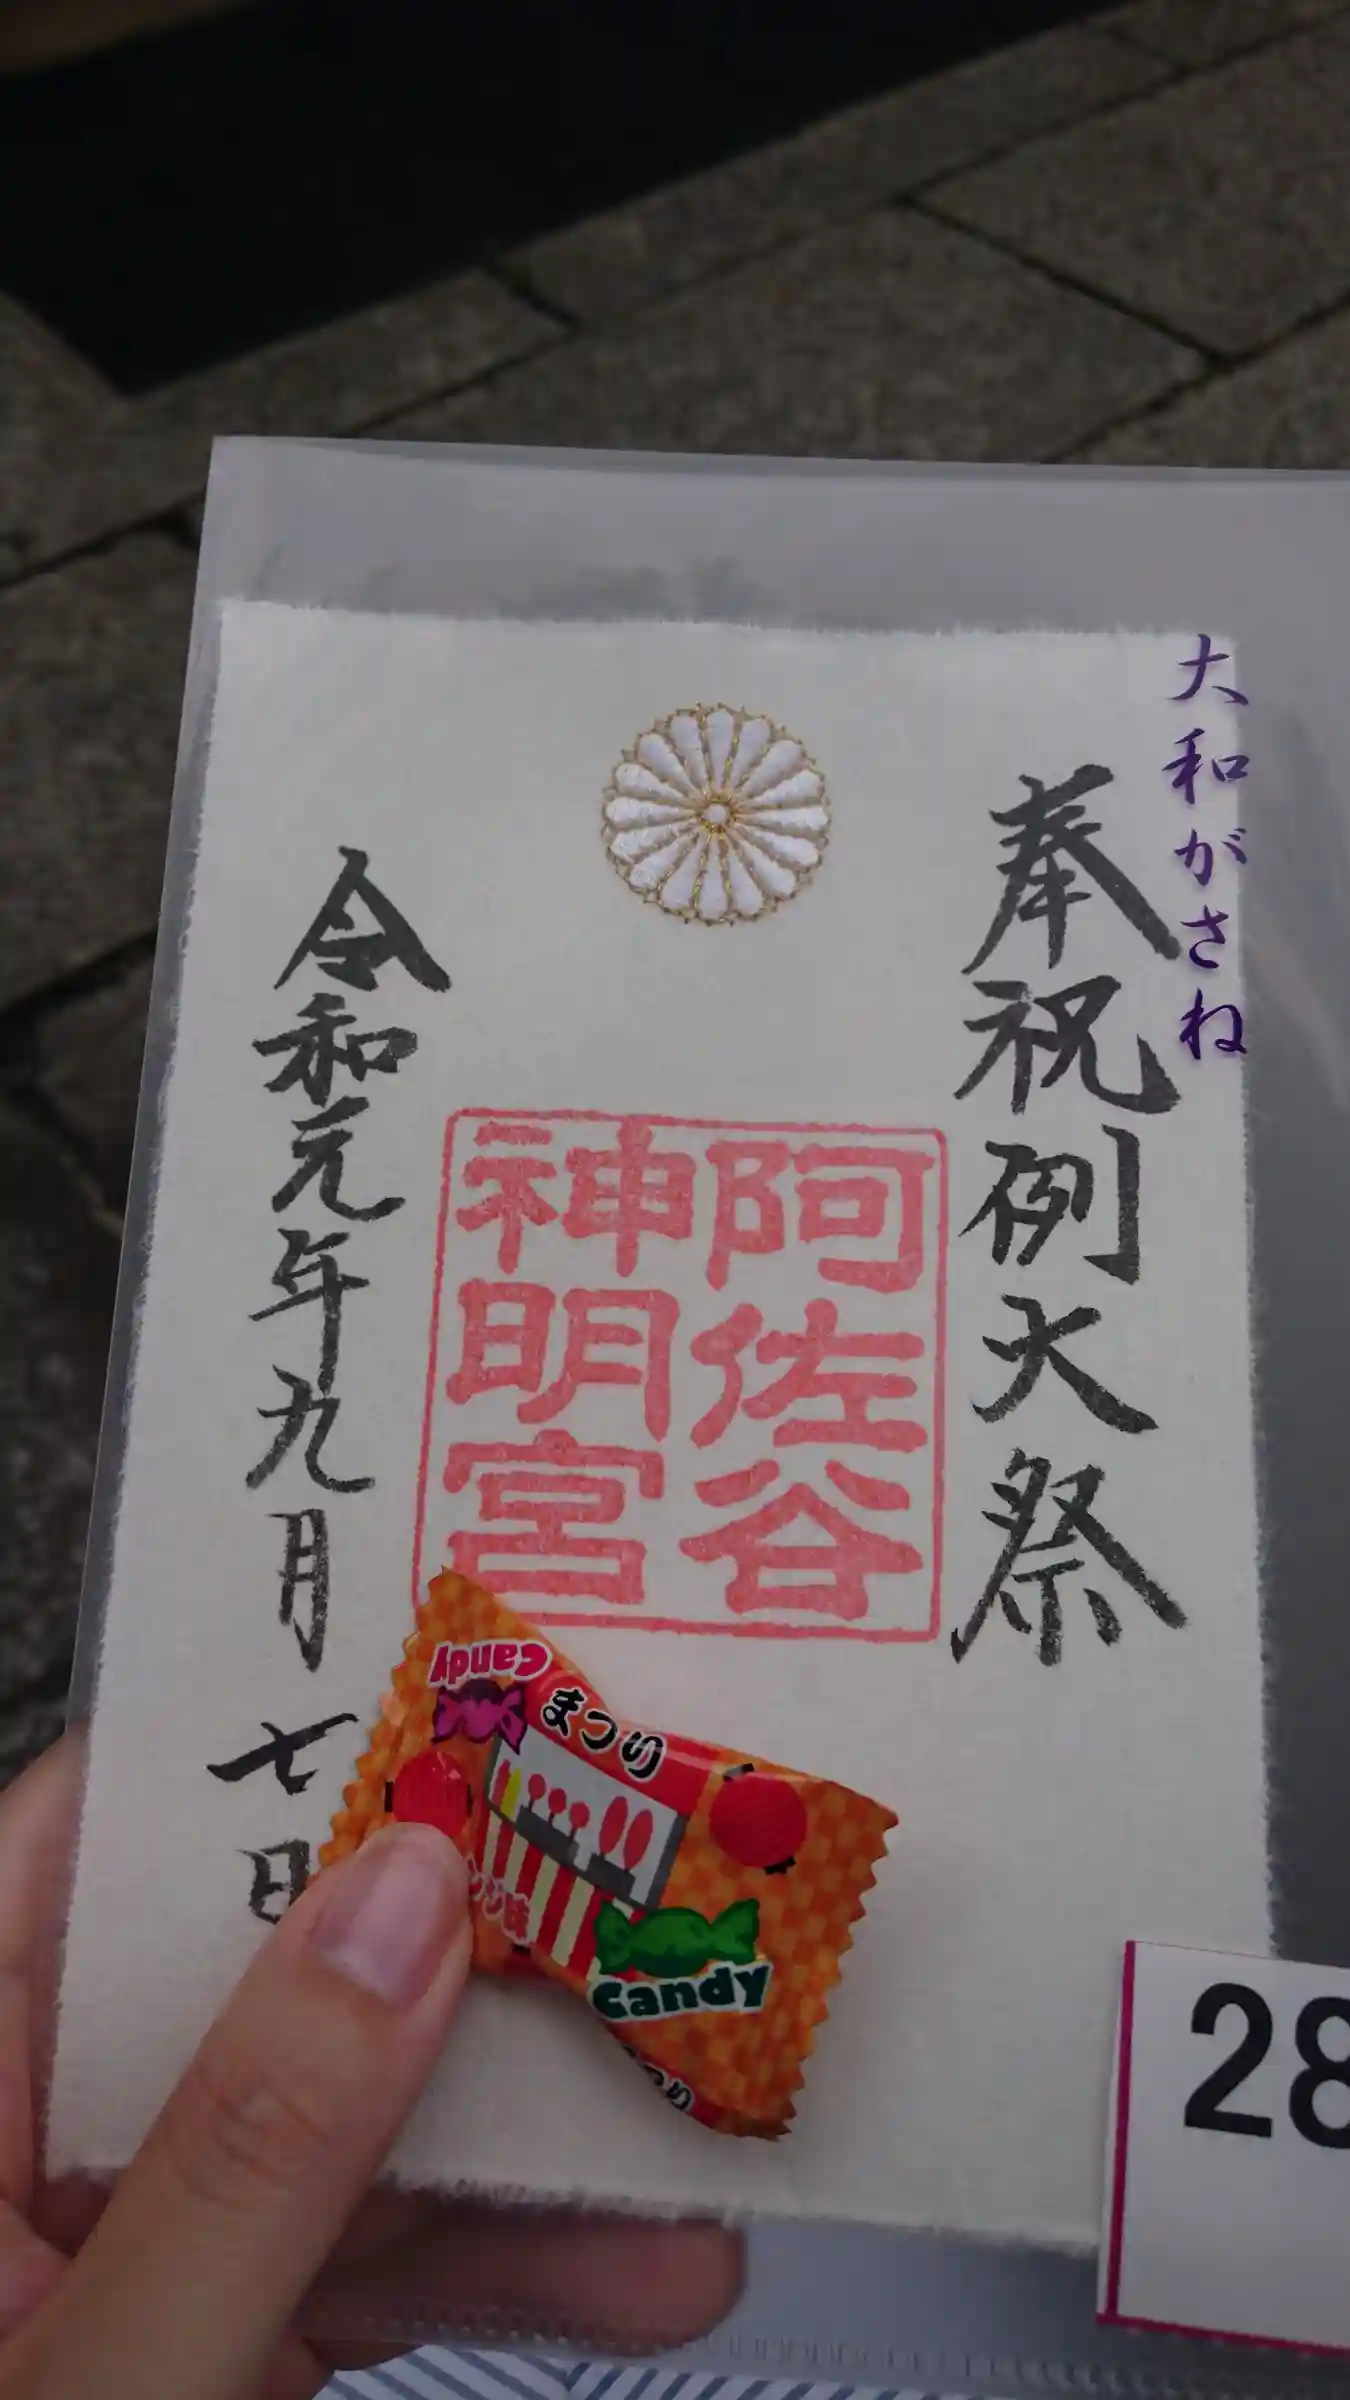 大和がさね
奉祝例大祭
阿佐谷
神明宮
令和元年九月七日
Candy
まつり
ンジ味
Candy
まつり
28